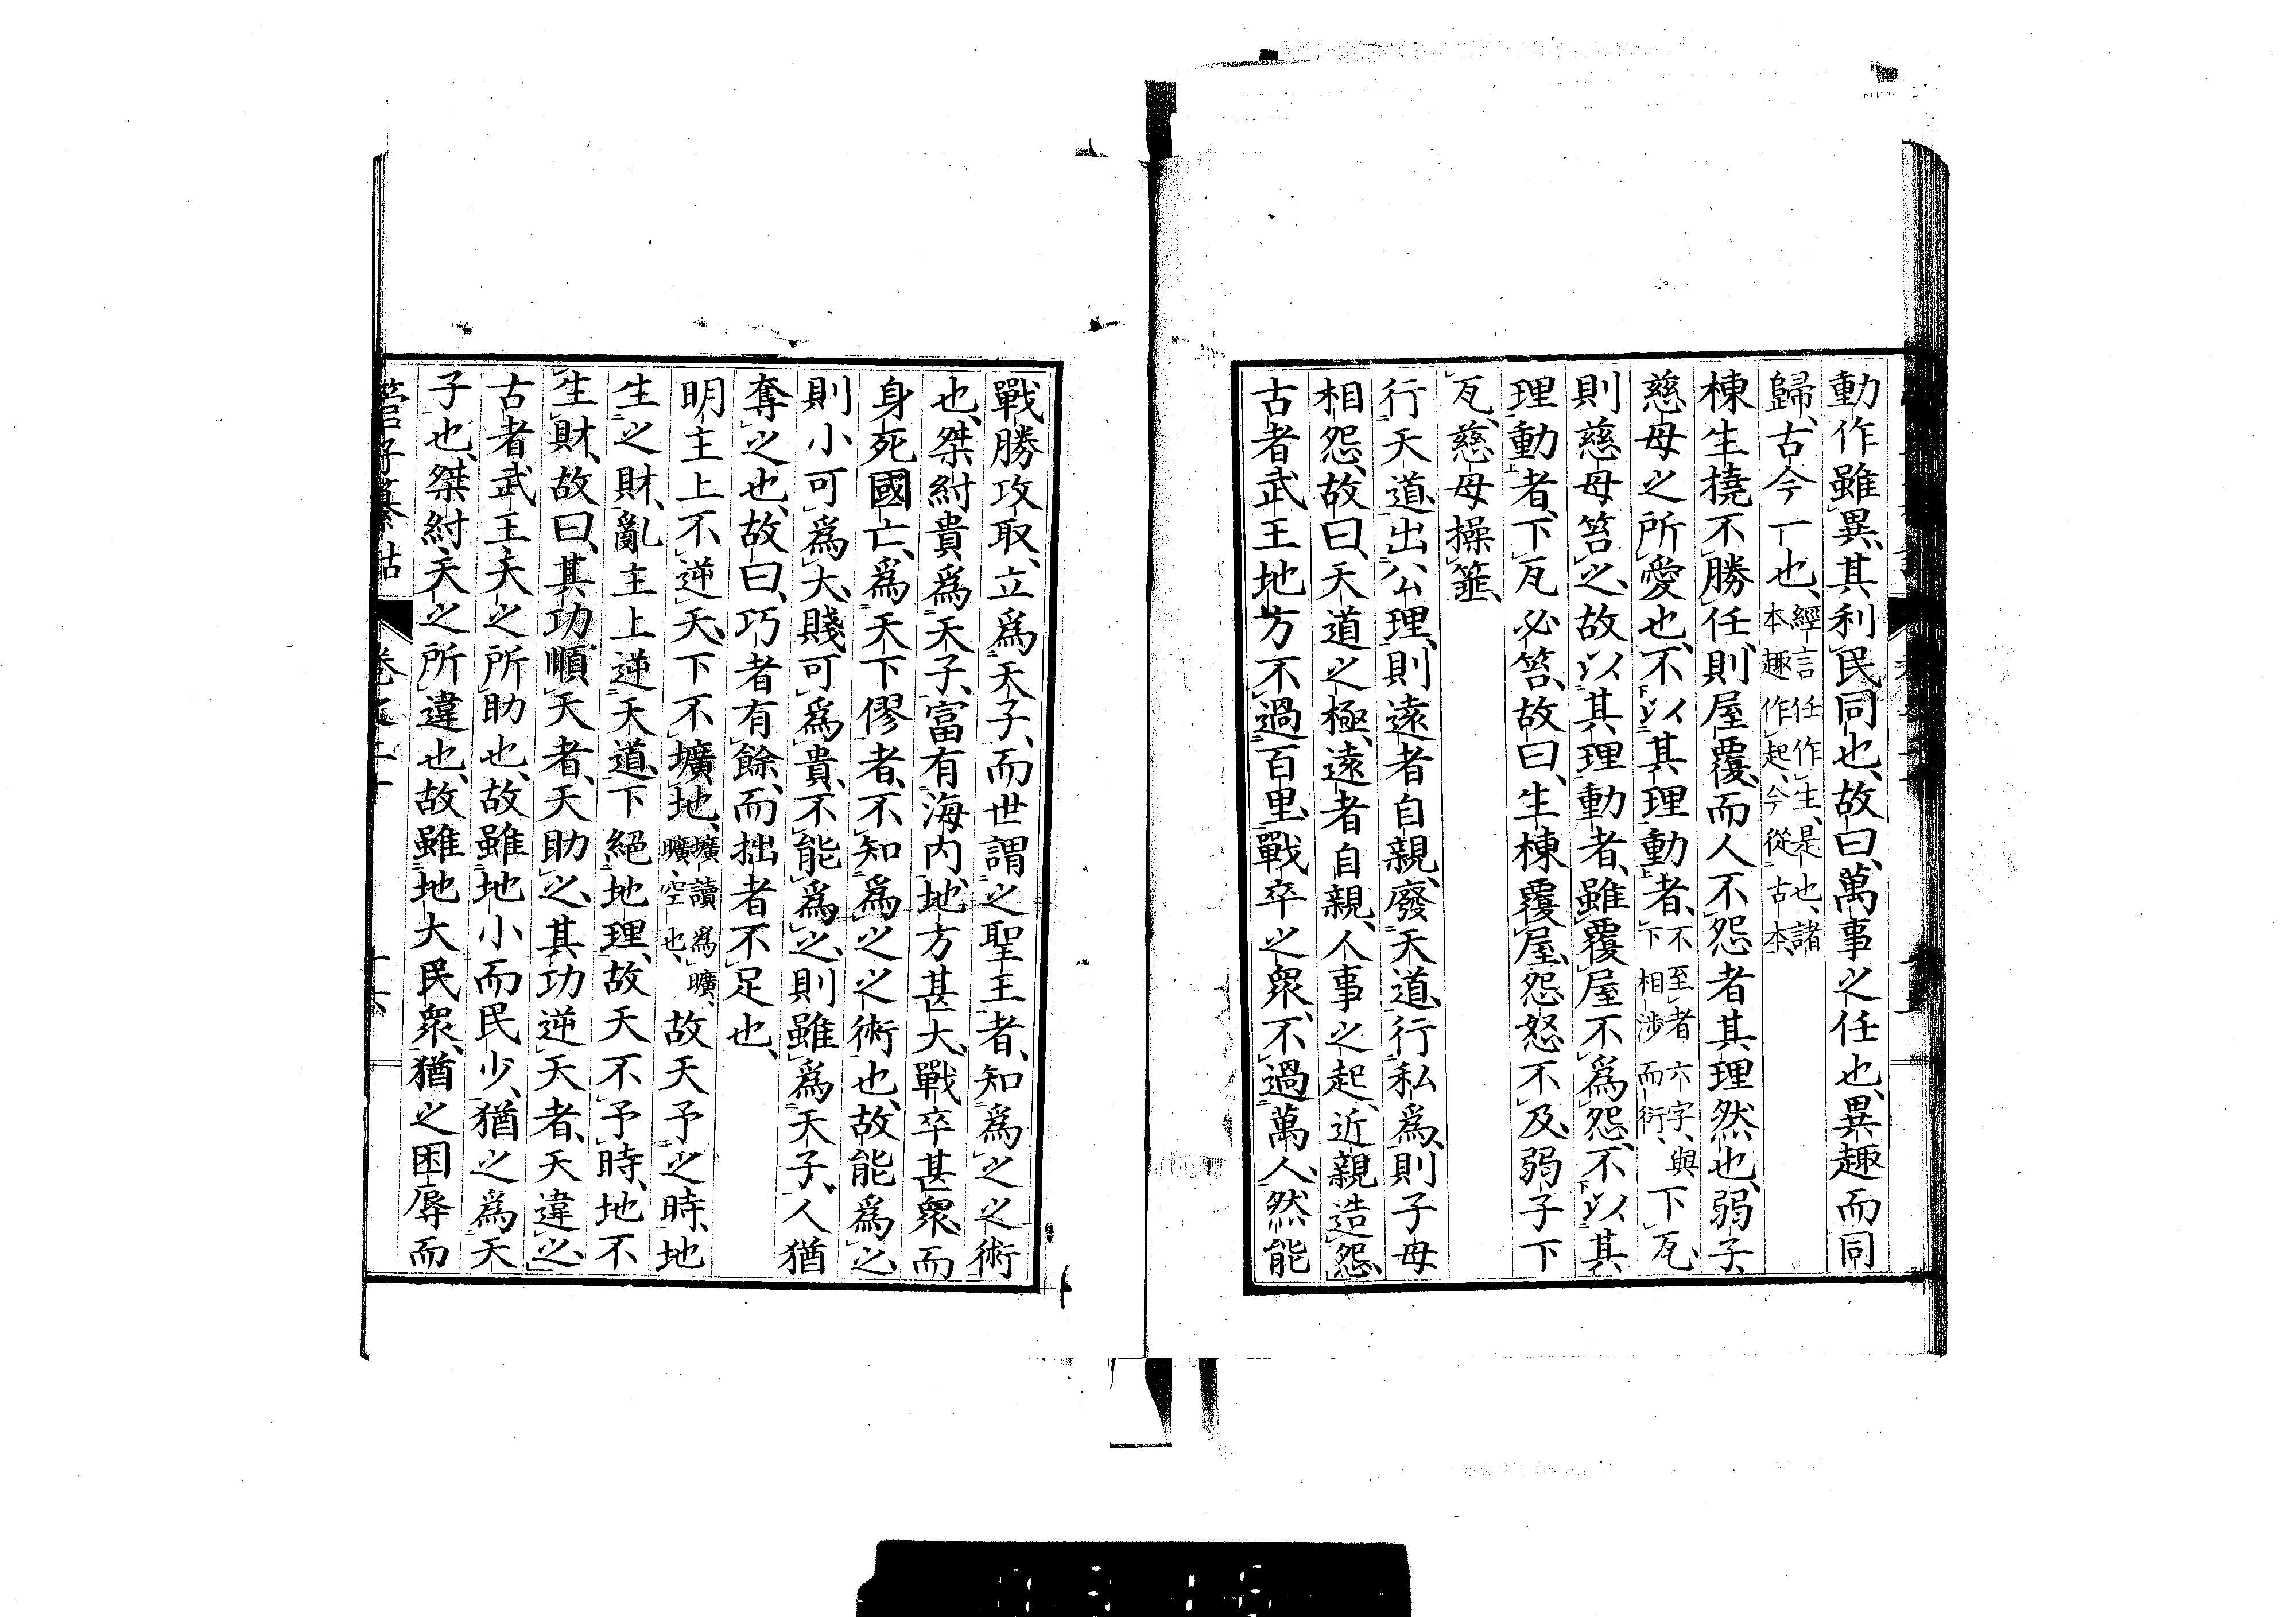 動作雖異、其利民同也、故曰、萬事之任也、異趣而同
歸、古今一也、經言任作生、是也、諸本趣作起、今從古本、
棟生橈不勝任、則屋覆、而人不怨者其理然也、弱子
慈母之所愛也、不以其理動者、不至者六字、與下相涉而衍、下瓦、
則慈母笞之、故以其理動者、雖覆屋不爲怨、不以其
理動者、下瓦必笞、故曰、生棟覆屋、怨怒不及、弱子下
瓦、慈母操箠、
行天道、出公理、則遠者自親、廢天道、行私爲、則子母
相怨、故曰、天道之極、遠者自親、人事之起、近親造怨、
古者武王地方不過百里、戰卒之衆、不過萬人、然能
戰勝攻取、立爲天子、而世謂之聖王者、知爲之之術
也、桀紂貴爲天子、富有海內、地方甚大、戰卒甚衆、而
身死國亡、爲天下僇者、不知爲之之術也、故能爲之、
則小可爲大、賤可爲貴、不能爲之、則雖爲天子、人猶
奪之也、故曰、巧者有餘、而拙者不足也、
明主上不逆天、下不壙地、壙讀爲曠、曠、空也、故天予之時、地
生之財、亂主上逆天道、下絕地理、故天不予時、地不
生財、故曰、其功順天者、天助之、其功逆天者、天違之、
古者武王天之所助也、故雖地小而民少、猶之爲天
子也、桀紂天之所違也、故雖地大民衆、猶之困辱而
管子纂詁 卷之二十 十六